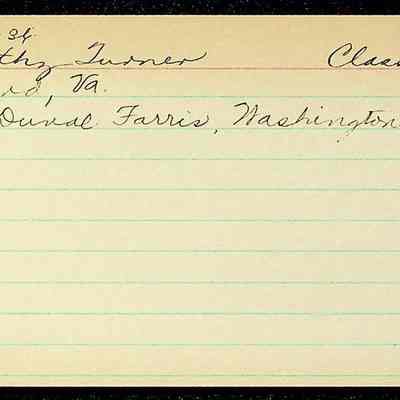 36
thy Turner Class
rd, Va.
Duval Farris, Washington